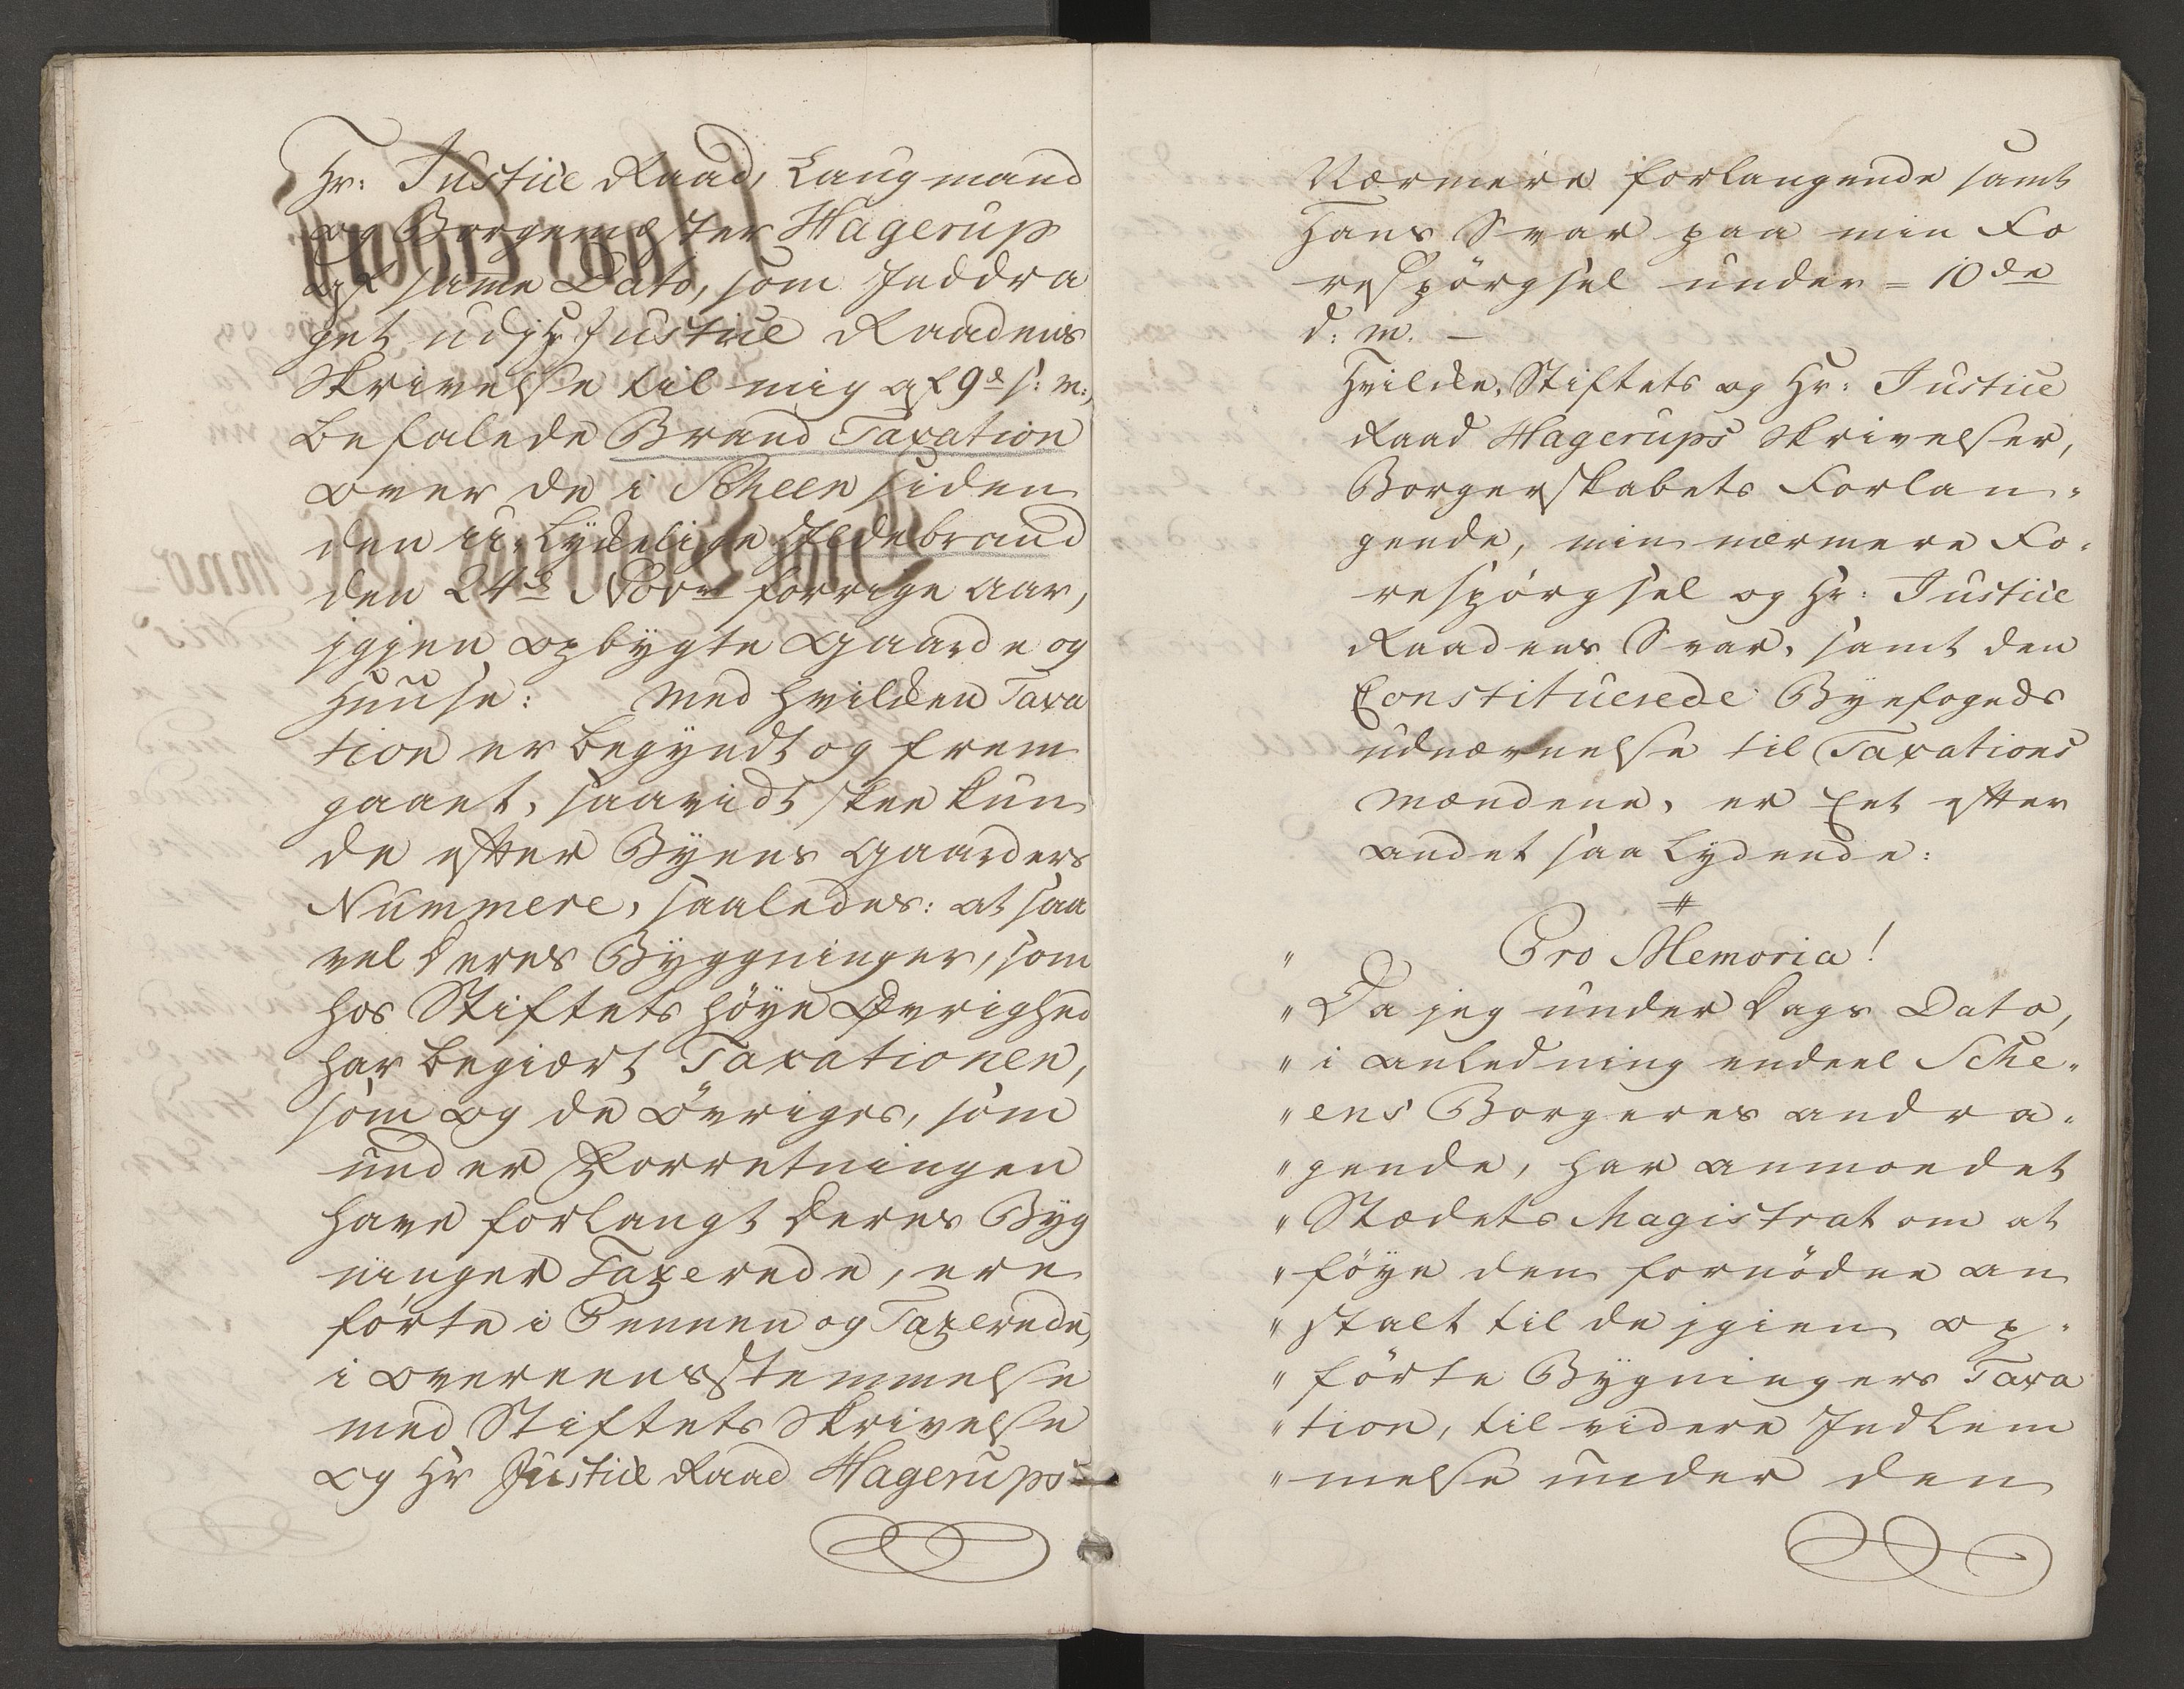 Hr: Justice Raad, Laugmand
og Borgemester Hagerup
af samme Dato, som Inddra
get udj Hr Justice Raadens
Skrivelse til mig af 9d s: m:,
befalede Brand Taxation
over de i Scheen siden
den ulykkelige Ildebrand
den 24d Novr forrige Aar,
igjen opbygte Gaarde og
Huuse: Med hvilken Taxa
tion er begyndt og frem
gaaet, saavidt skee kun
de efter Byens Gaarders
Nummere, saaledes: at saa
vel deres Byggninger, som
hos Stiftets höye Øvrighed
har begiært Taxationen,
som og de övriges, som
under Forretningen
have forlangt deres Byg
ninger Taxerede, ere
förte i Pennen og Taxerede,
i overeensstemmelse
med Stiftets Skrivelse
og Hr Justice Raad Hagerups
Nærmere forlangende samt
Hans Svar paa min Fo
respörgsel under = 10de
d: m. —
Hvilke, Stiftets og Hr: Justice
Raad Hagerups Skrivelser,
Borgerskabets Forlan-
gende, min nærmere Fo-
respörgsel og Hr: Justice
Raadens Svar, samt den
Constituerede Byefogeds
udnævnelse til Taxations
Mændene, er Eet efter
andet saa Lydende:
#
" Pro Memoria!
" Da jeg under Dags Dato,
" i anledning endeel Sche-
" ens Borgeres andra-
" gende, har anmoedet
" Stædets Magistrat om at
" föye den fornödne an
" stalt til de igien op-
" förte Bygningers Taxa
" tion, til videre Indlem
" melse under den